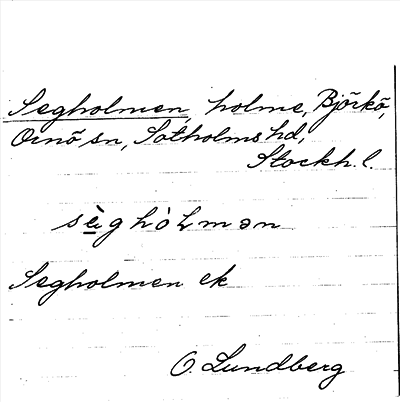 Segholmen, holme, Björkö,
Ornö sn, Sotholms hd,
Stockh. l.
sèg hòLmən
Segholmen ek
O. Lundberg